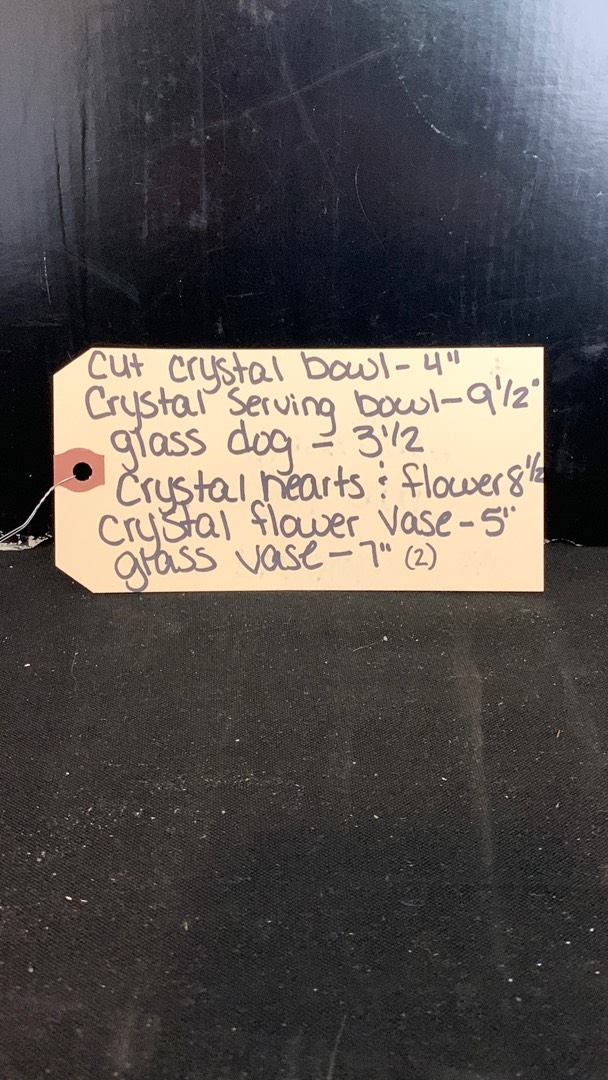 Cut crystal bowl - 4"
Crystal Serving bowl - 9 1/2"
glass dog - 3 1/2
Crystal hearts & flower 8 1/2
crystal flower vase - 5"
glass vase - 7" (2)